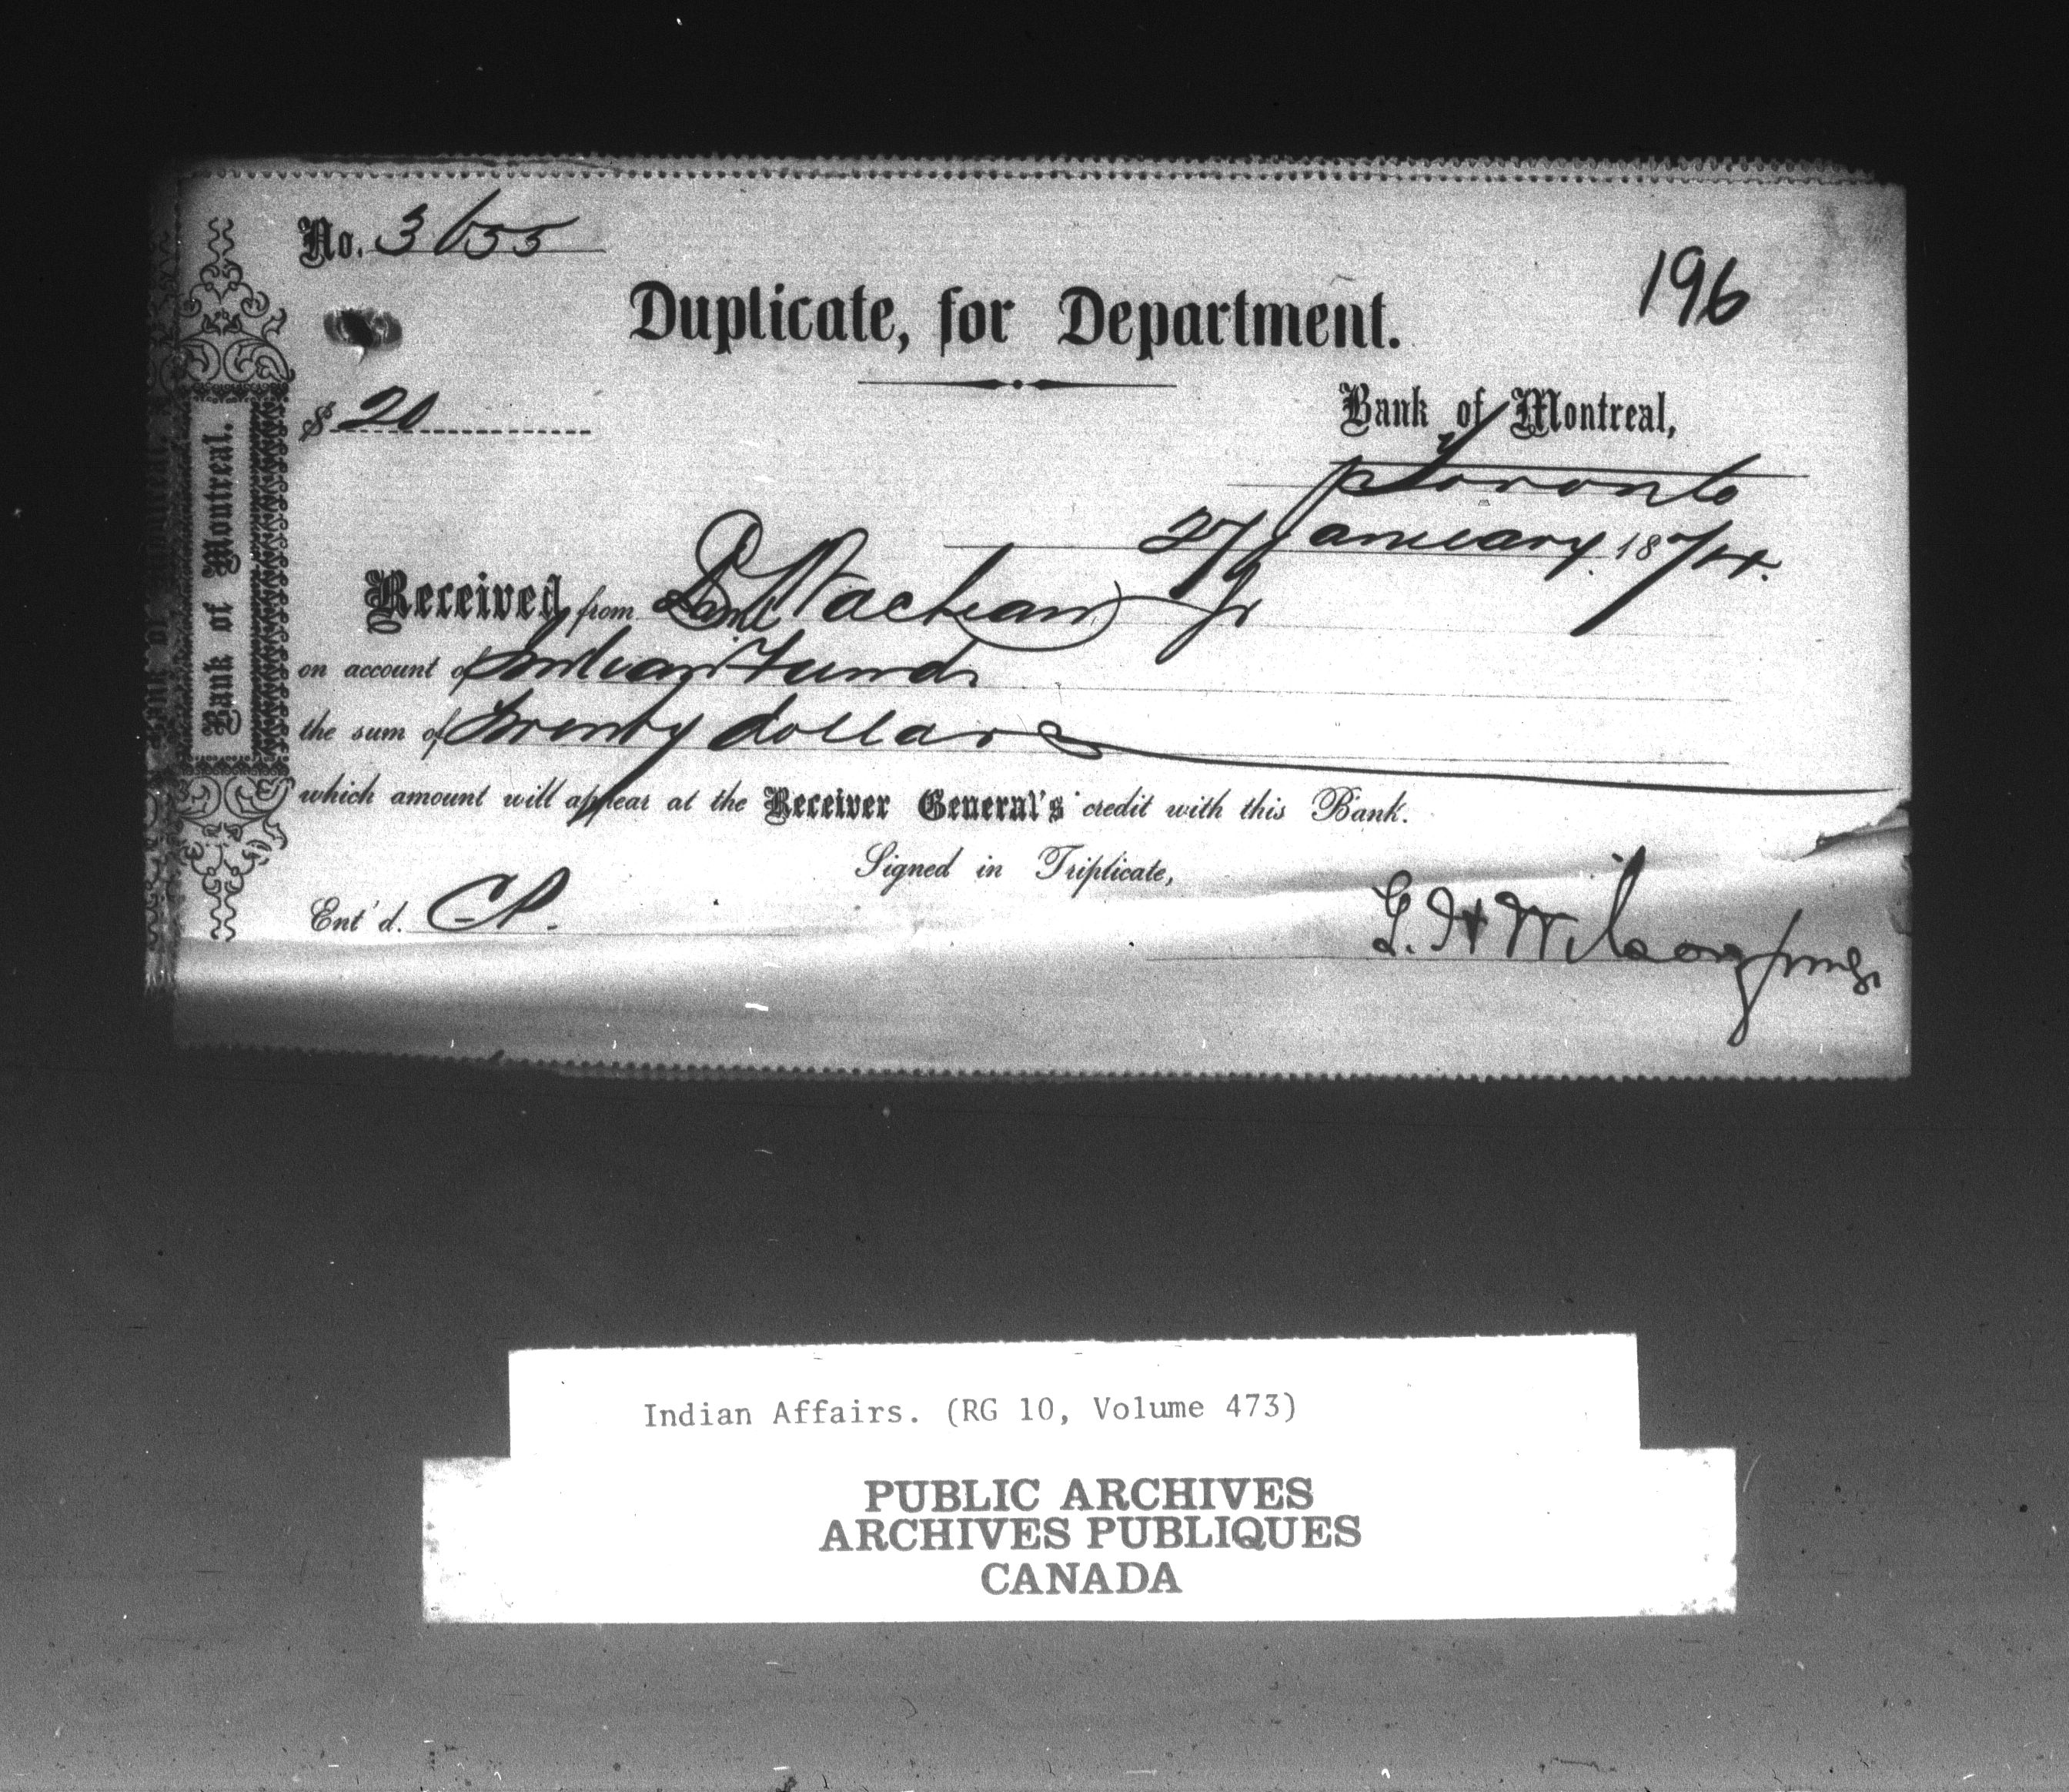 No. 3655
196
Duplicate, for Department.
$ 20
Bank of Montreal,
Toronto
27 January 1874.
Received from Jr
on account of Indian Funds
the sum of twenty dollars
which amount will appear at the Receiver General's credit with this Bank.
Signed in Triplicate,
Ent'd.
G. H Wilson
Bank of Montreal.
Indian Affairs. (RG 10, Volume 473)
PUBLIC ARCHIVES
ARCHIVES PUBLIQUES
CANADA